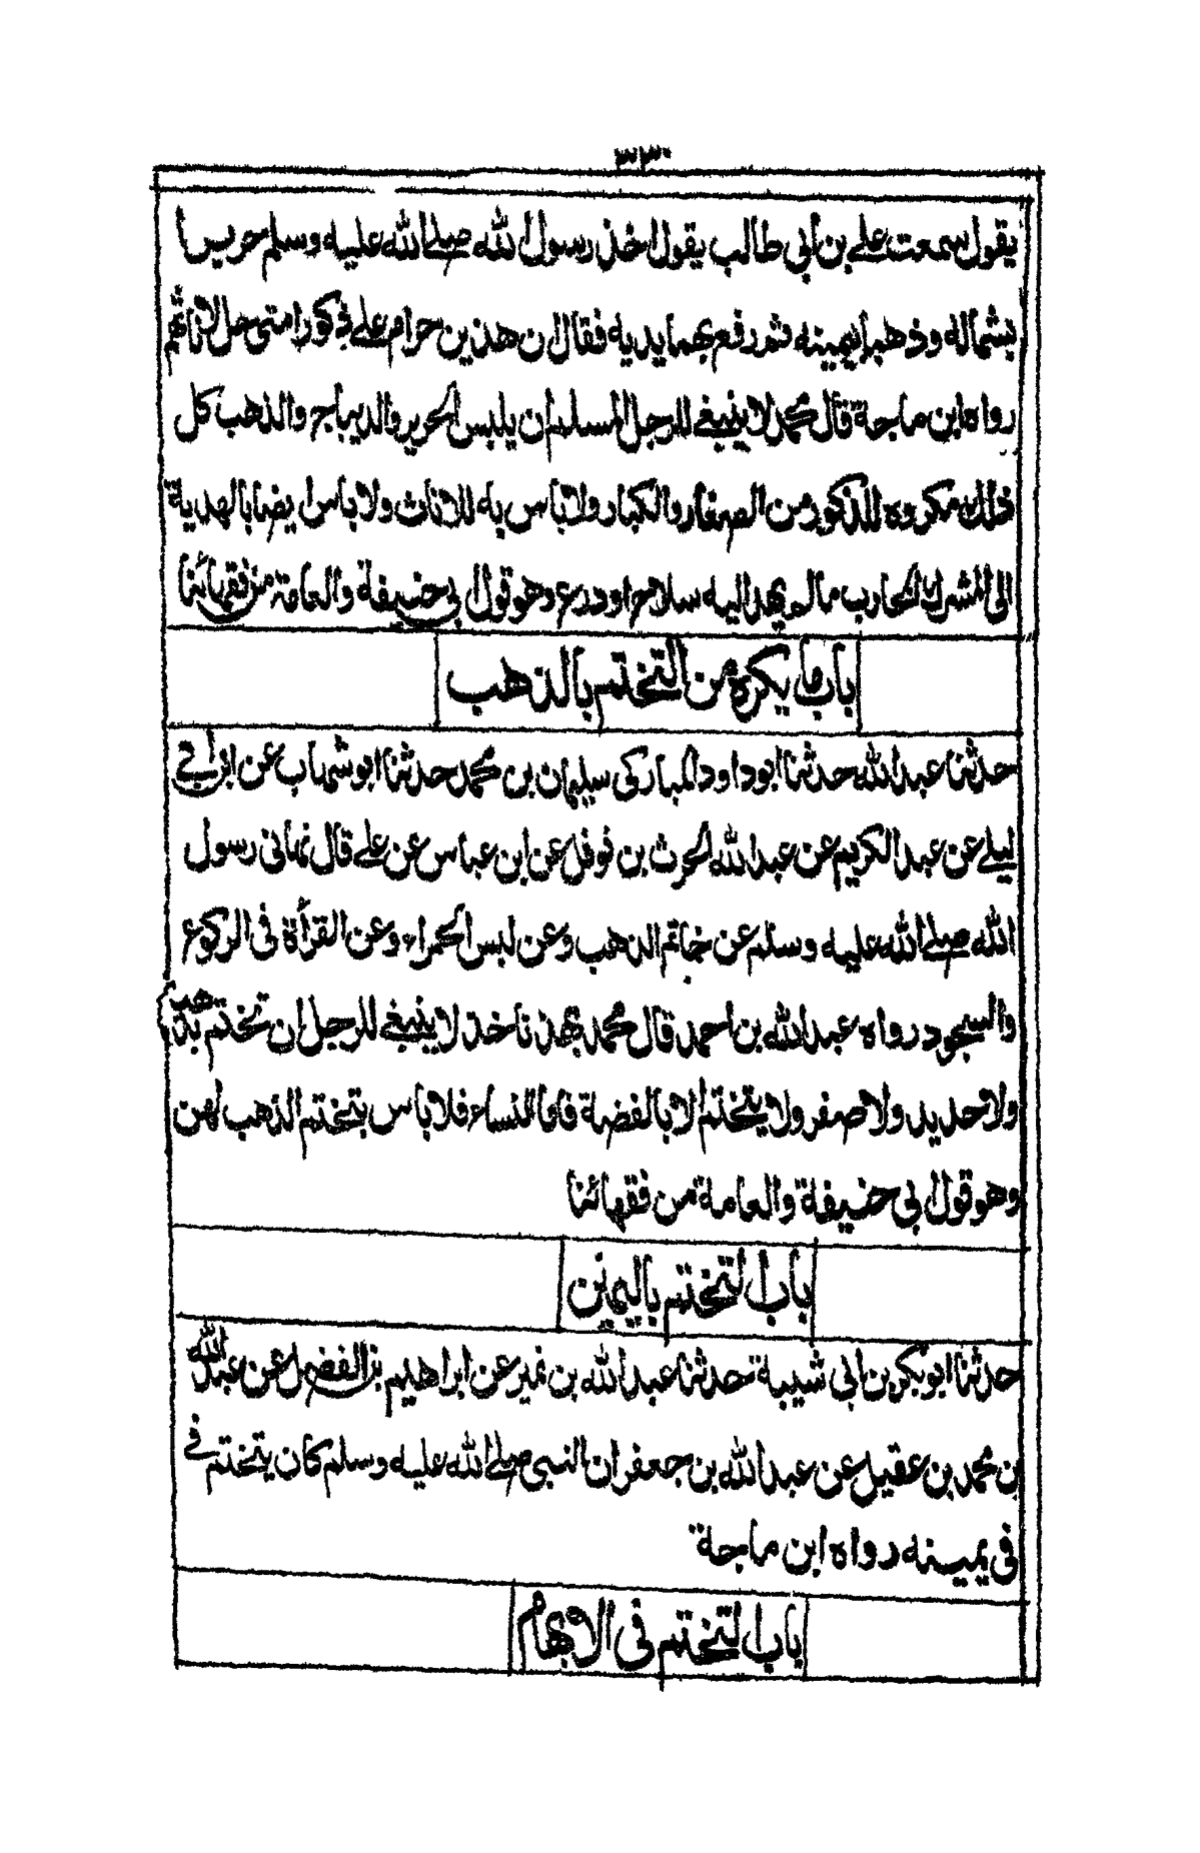 ٣٣٠
يقول سمعت علے بن ابي طالب يقول اخذ رسول الله صلے الله عليه وسلم حريرا
بشماله وذهبا بيمينه ثم رفع بهما يديه فقال ان هذين حرام علے ذكور امتى حل لاناثهم
رواه ابن ماجة قال محمد لا ينبغے للرجل المسلم ان يلبس الحرير والديباج والذهب كل
ذلك مكروه للذكور من الصغار والكبار ولا باس به للاناث ولا باس ايضا بالهدية
الى المشرك المحارب ما لم يهد اليه سلاح او درع وهو قول ابي حنيفة والعامة من فقهائنا
باب ما يكره من التختم بالذهب
حدثنا عبد الله حدثنا ابو داود المباركى سليمان بن محمد حدثنا ابو شهاب عن ابن ابے
ليلے عن عبد الكريم عن عبد الله الحرث بن نوفل عن ابن عباس عن علے قال نهانى رسول
الله صلے الله عليه وسلم عن خاتم الذهب وعن لبس الحمراء وعن القرأة فى الركوع
والسجود رواه عبد الله بن احمد قال محمد بهذ ناخذ لا ينبغے للرجل ان تختم بذهب
ولا حديد ولا صفر ولا يتختم الا بالفضة فاما النساء فلا باس بتختم الذهب لهن
وهو قول ابي حنيفة والعامة من فقهائنا
باب التختم باليمين
حدثنا ابو بكر بن ابي شيبة حدثنا عبد الله بن نمير عن ابراهيم بن الفضل عن عبد الله
بن محمد بن عقيل عن عبد الله بن جعفر ان النبى صلے الله عليه وسلم كان يتختم فے
فى يمينه رواه ابن ماجة
باب التختم فى الابهام